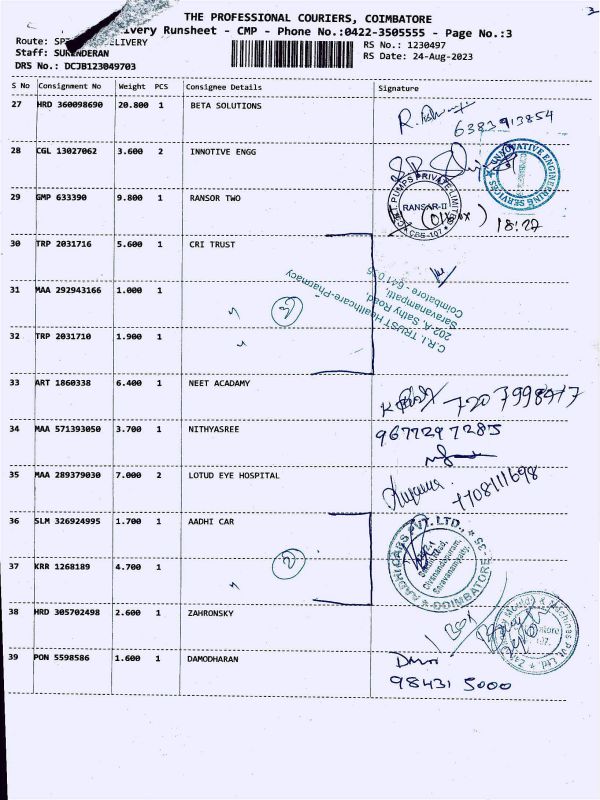 THE PROFESSIONAL COURIERS, COIMBATORE
Delivery Runsheet - CMP - Phone No.:0422-3505555 - Page No.:3
Route: DELIVERY
RS No.: 1230497
Staff: SURENDERAN
RS Date: 24-Aug-2023
DRS No.: DCJB123049703
S No Consignment No Weight PCS Consignee Details Signature
27 HRD 360098690 20.800 1 BETA SOLUTIONS
6383913854
28 CGL 13027062 3.600 2 INNOTIVE ENGG
INNOVATIVE ENGINEERING SERVICES
29 GMP 633390 9.800 1 RANSOR TWO
C.R.I. PUMPS PRIVATE LIMITED
RANSAR-II
CBE-107
18:27
30 TRP 2031716 5.600 1 CRI TRUST
C.R.I. TRUST Healthcare-Pharmacy
202-A, Sathy Road,
Saravanampatti,
Coimbatore - 641 035
31 MAA 292943166 1.000 1
3
32 TRP 2031710 1.900 1
33 ART 1860338 6.400 1 NEET ACADAMY
7207998417
34 MAA 571393050 3.700 1 NITHYASREE
9677297285
35 MAA 289379030 7.000 2 LOTUD EYE HOSPITAL
7708111698
36 SLM 326924995 1.700 1 AADHI CAR
AADHI CARS PVT. LTD.,
Sathy Road,
Sivanandapuram,
Saravanampatty,
COIMBATORE - 35
37 KRR 1268189 4.700 1
2
38 HRD 305702498 2.600 1 ZAHRONSKY
1 Box
39 PON 5598586 1.600 1 DAMODHARAN
98431 5000